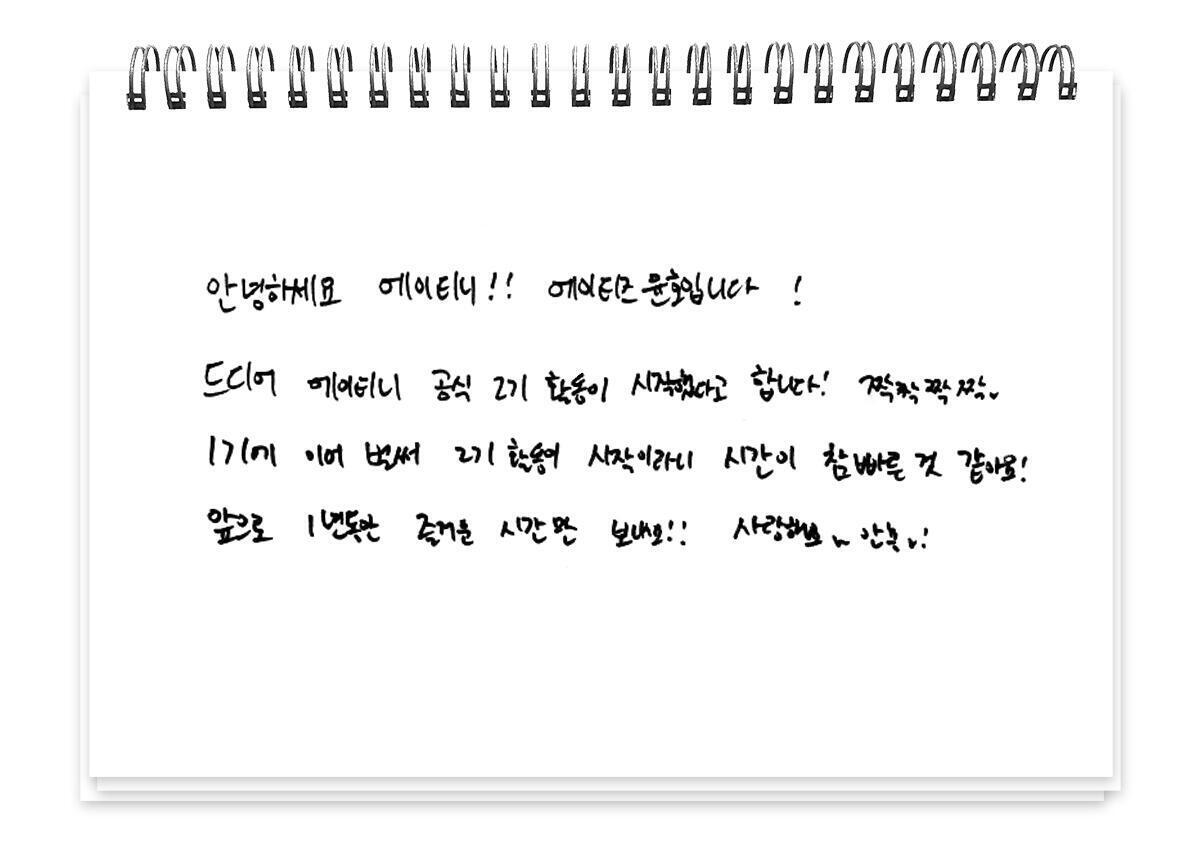 안녕하세요 에이티니!! 에이티즈 윤호입니다 !
드디어 에이티니 공식 2기 활동이 시작했다고 합니다! 짝짝짝짝
1기에 이어 벌써 2기 활동이 시작이라니 시간이 참 빠른 것 같아요!
앞으로 1년동안 즐거운 시간만 보내요!! 사랑해요 안뇽!